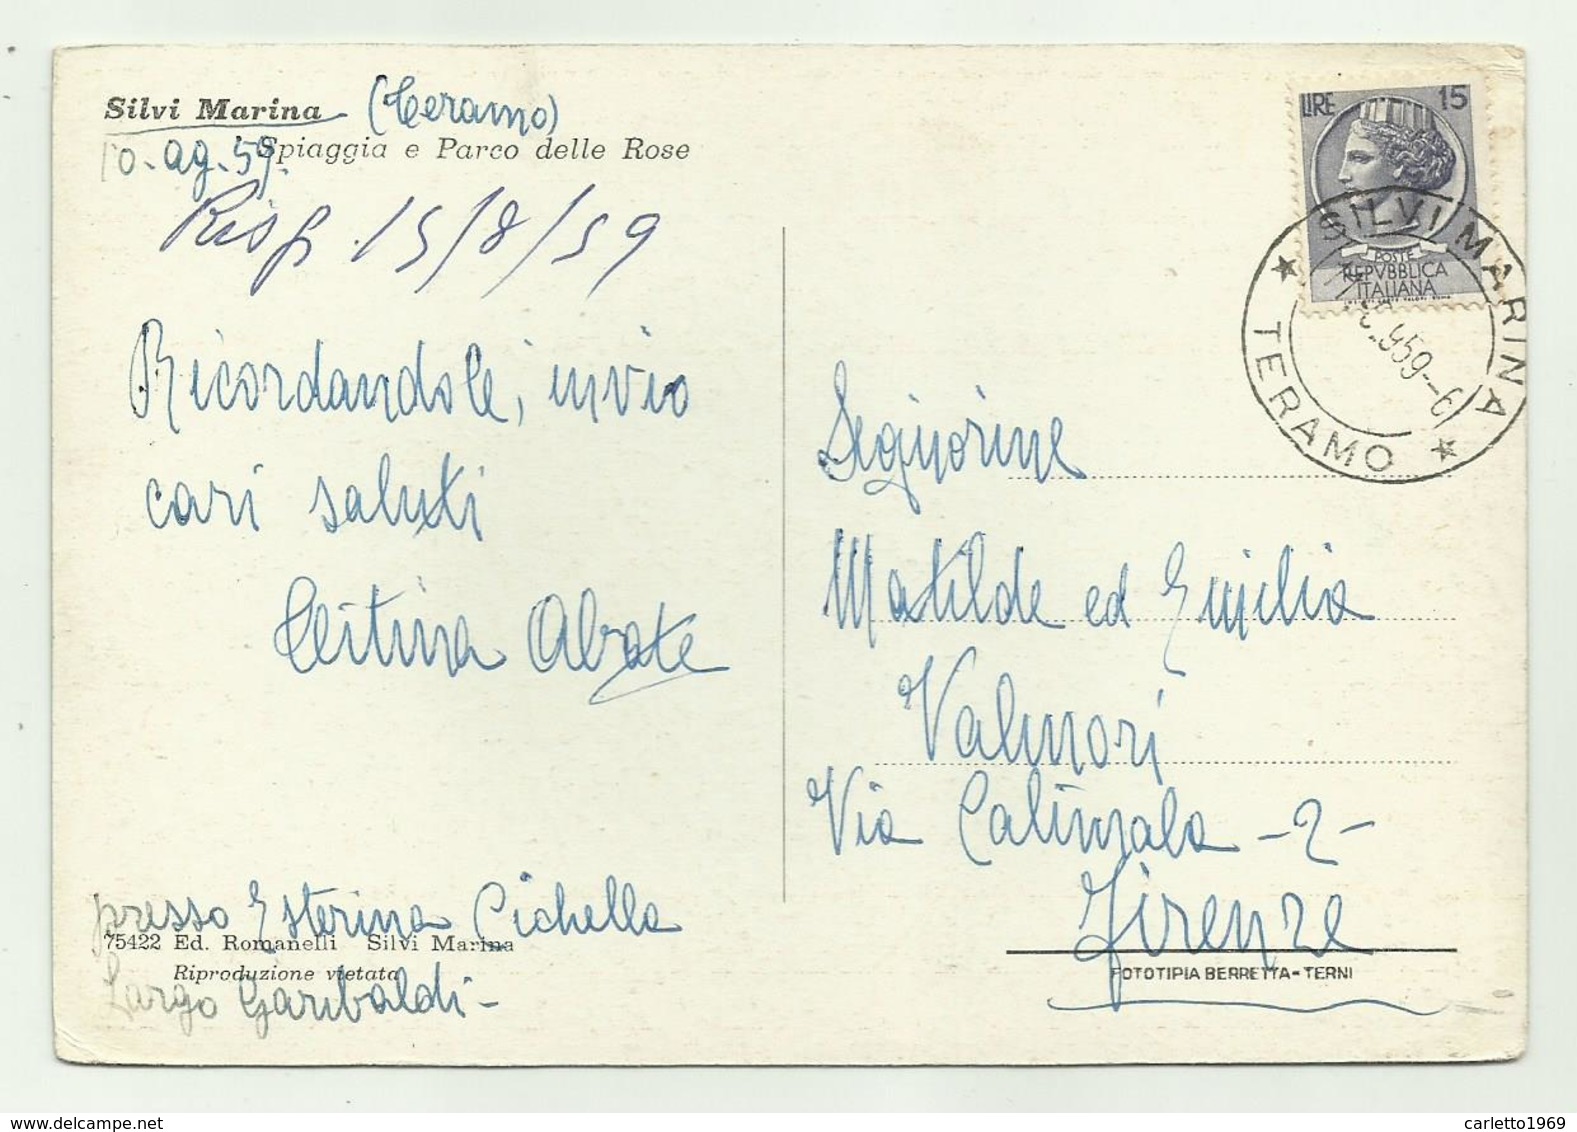 Silvi Marina (Teramo)
Spiaggia e Parco delle Rose
10. ag. 59.
Risp. 15/8/59
Ricordandole, invio
cari saluti
Abate
presso Esterina Cichella
75422 Ed. Romanelli Silvi Marina
Riproduzione vietata
Largo Garibaldi-
LIRE 15
POSTE
REPVBBLICA
ITALIANA
SILVI MARINA
TERAMO
Signorine
Matilde ed Emilia
Valmori
Via Calimala -2-
Firenze
FOTOTIPIA BERRETTA-TERNI
www.delcampe.net
carletto1969